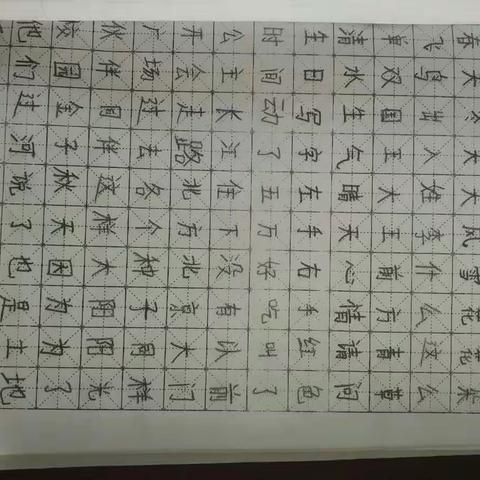 春天冬天大风雪花花朵
飞鸟出入姓李什么这么
单双国王大王前方青草
清水生气晴天心情请问
生日写字左手右手红色
时间动了五万好吃叫了
公主长江住下没有以前
开会走路北方北京大门
广场过去各个种子同样
伙伴同伴这样太阳阳光
校园金子秋天因为为了
他们过河说了也是土地